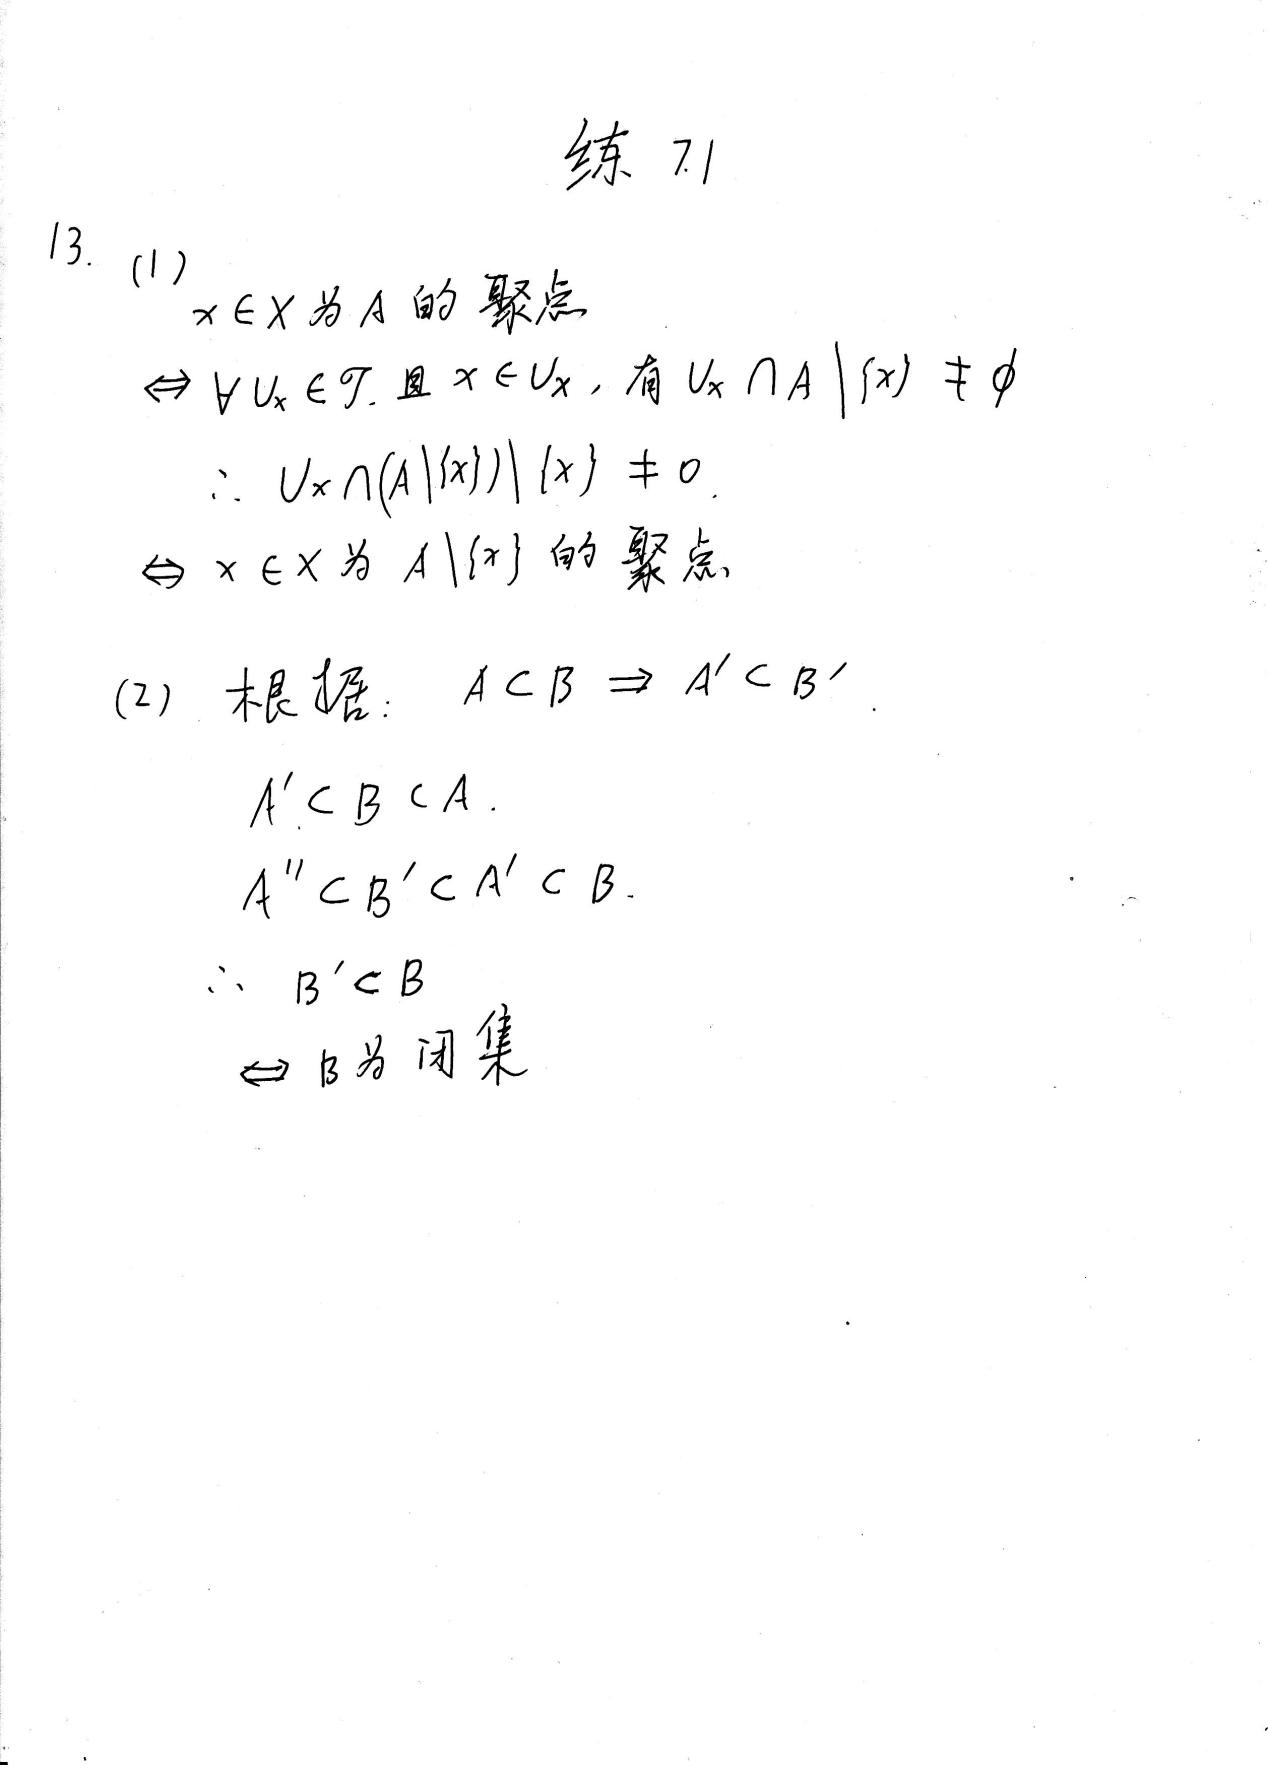 练 7.1
13. (1)
x ∈ X 为 A 的 聚点
⇔ ∀ Ux ∈ 𝒯. 且 x ∈ Ux, 有 Ux ∩ A \ {x} ≠ ϕ
∴ Ux ∩ (A \ {x}) \ {x} ≠ 0.
⇔ x ∈ X 为 A \ {x} 的 聚点
(2) 根据: A ⊂ B ⇒ A' ⊂ B'.
A' ⊂ B ⊂ A.
A'' ⊂ B' ⊂ A' ⊂ B.
∴ B' ⊂ B
⇔ B 为 闭集